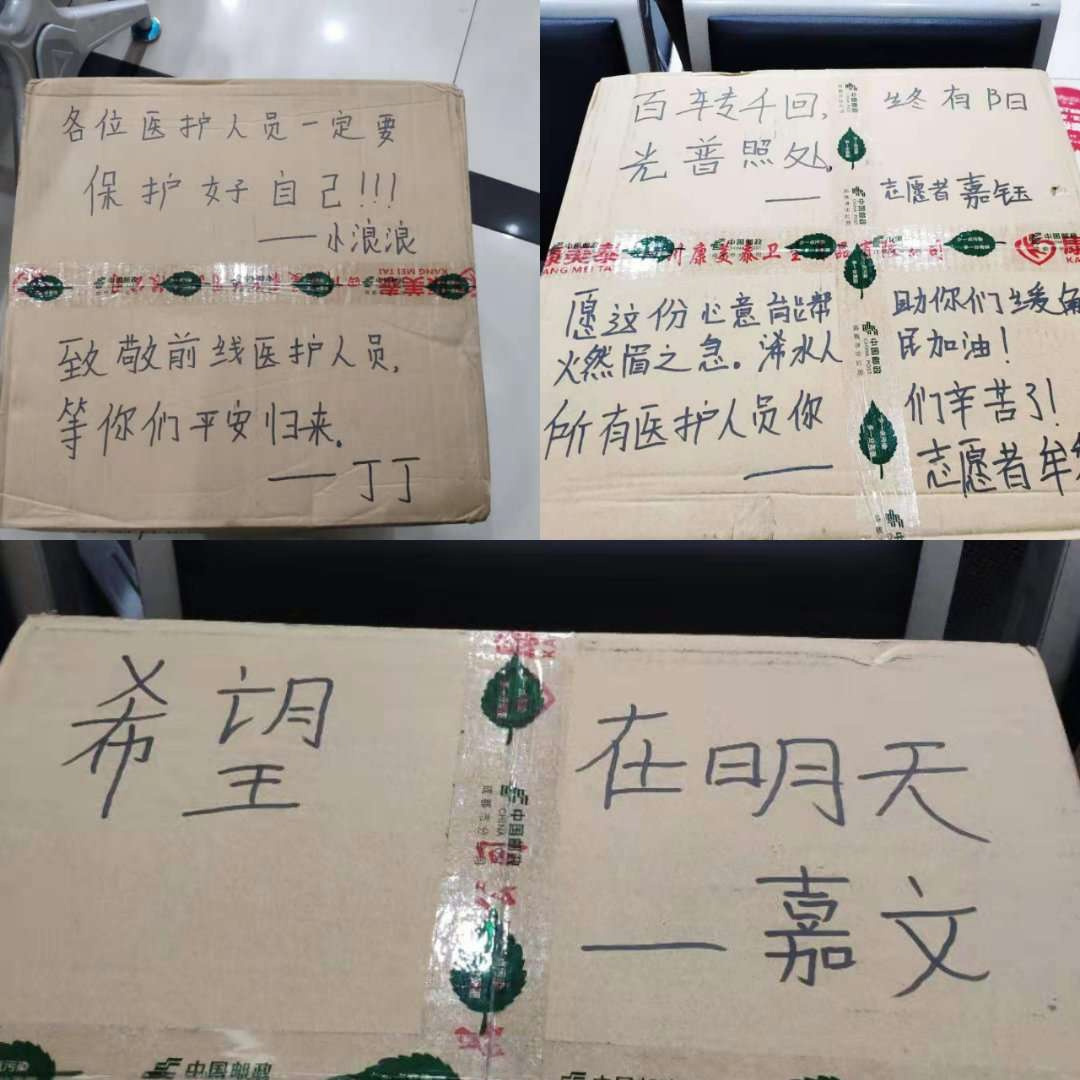 各位医护人员一定要
保护好自己!!!
——小浪浪
KANG MEI TAI
致敬前线医护人员,
等你们平安归来。
——丁丁
百转千回, 终有阳
光普照处,
——志愿者嘉钰
中国邮政
康美泰卫
KANG MEI TAI
愿这份心意能帮助你们缓解
火燃眉之急。浠水人民加油!
所有医护人员你们辛苦了!
——志愿者牟
希望在明天
——嘉文
中国邮政
CHINA POST
成都市分公司
中国邮政